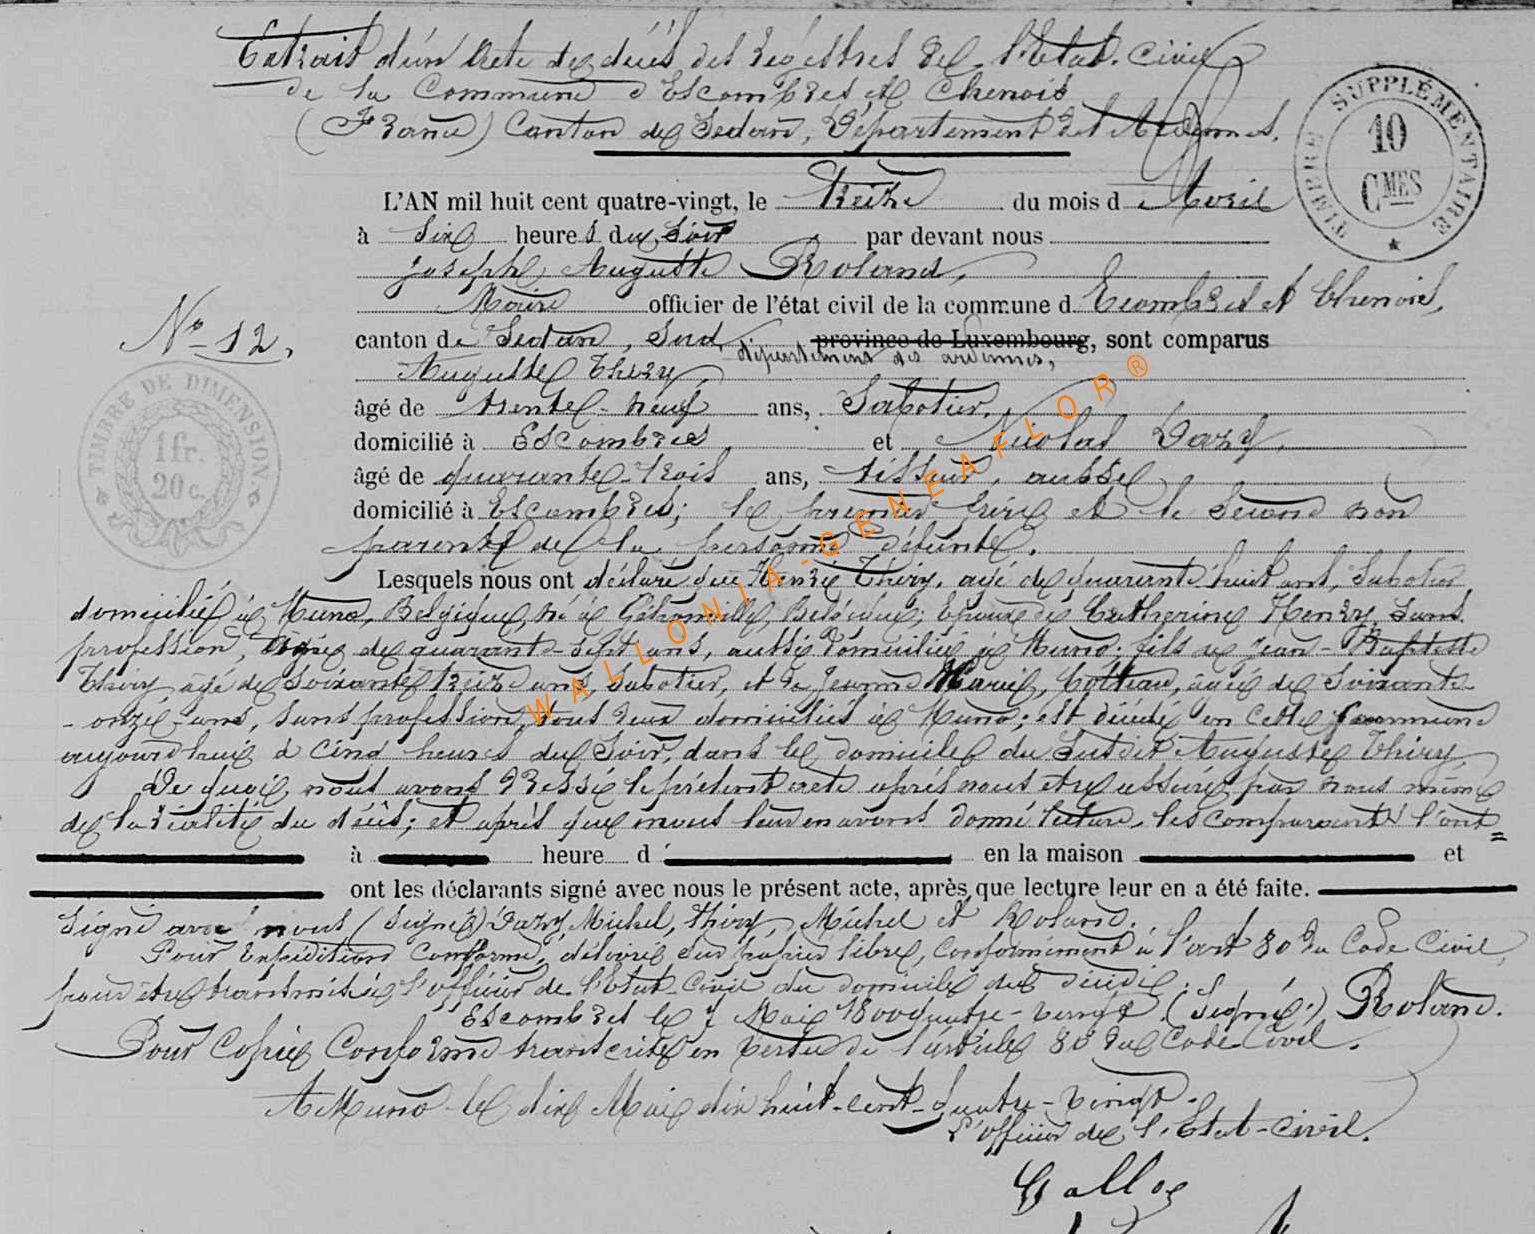 Extrait d'un Acte de décès des registres de l'Etat-Civil
de la Commune d'Escombres et Chenois
(France) Canton de Sedan, Département des Ardennes.
TIMBRE SUPPLÉMENTAIRE
10
CMES
L'AN mil huit cent quatre-vingt, le Treize du mois d Avril
à Six heures du Soir par devant nous
Joseph Auguste Roland,
Maire officier de l'état civil de la commune d Ecombres et Chenois,
N° 12.
canton de Sedan, Sud, province de Luxembourg, sont comparus
département des ardennes,
Auguste Thiry,
âgé de trente-neuf ans, Sabotier,
domicilié à Escombres, et Nicolas Dazy,
TIMBRE DE DIMENSION
1 fr.
20 c.
âgé de quarante-trois ans, tisseur, aussi
domicilié à Escombres; le premier frère et le Second non
parent de la personne défunte.
Lesquels nous ont déclaré que Henri Thiry, agé de quarante huit ans, Sabotier
domicilié à Muno, Belgique, né à Belgique; Epoux de Catherine Henry, Sans
profession, Agée de quarante-sept ans, aussi domiciliée à Muno; fils de Jean-Baptiste
Thiry agé de Soixante treize ans Sabotier, et de Jeanne Marie, Colleau, agée de Soixante-
-onze-ans, Sans profession, tous deux domiciliés à Muno; est décédé en cette Commune
aujourd'hui à cinq heures du Soir, dans le domicile du Susdit Auguste Thiry,
De quoi, nous avons dressé le présent acte après nous être assuré par nous même
de la réalité du décès; et après que nous leur en avons donné lecture, les comparants l'ont=
à heure d en la maison et
ont les déclarants signé avec nous le présent acte, après que lecture leur en a été faite.
Signé avec nous (Signé) Dazy, Michel, Thiry, Michel et Roland.
Pour Expédition Conforme, délivrée sur papier libre, conformément à l'art 80 du Code Civil,
pour être transmise à l'officier de l'Etat-Civil du domicile du décédé.
Escombres le 7 Mai 1800 quatre-vingt (Signé:) Roland.
Pour Copie Conforme transcrite en vertu de l'article 80 du Code Civil.
A Muno le dix Mai dix huit-cent-quatre-vingt.
L'officier de l'Etat-civil.
WALLONIA-GENEAFLOR®